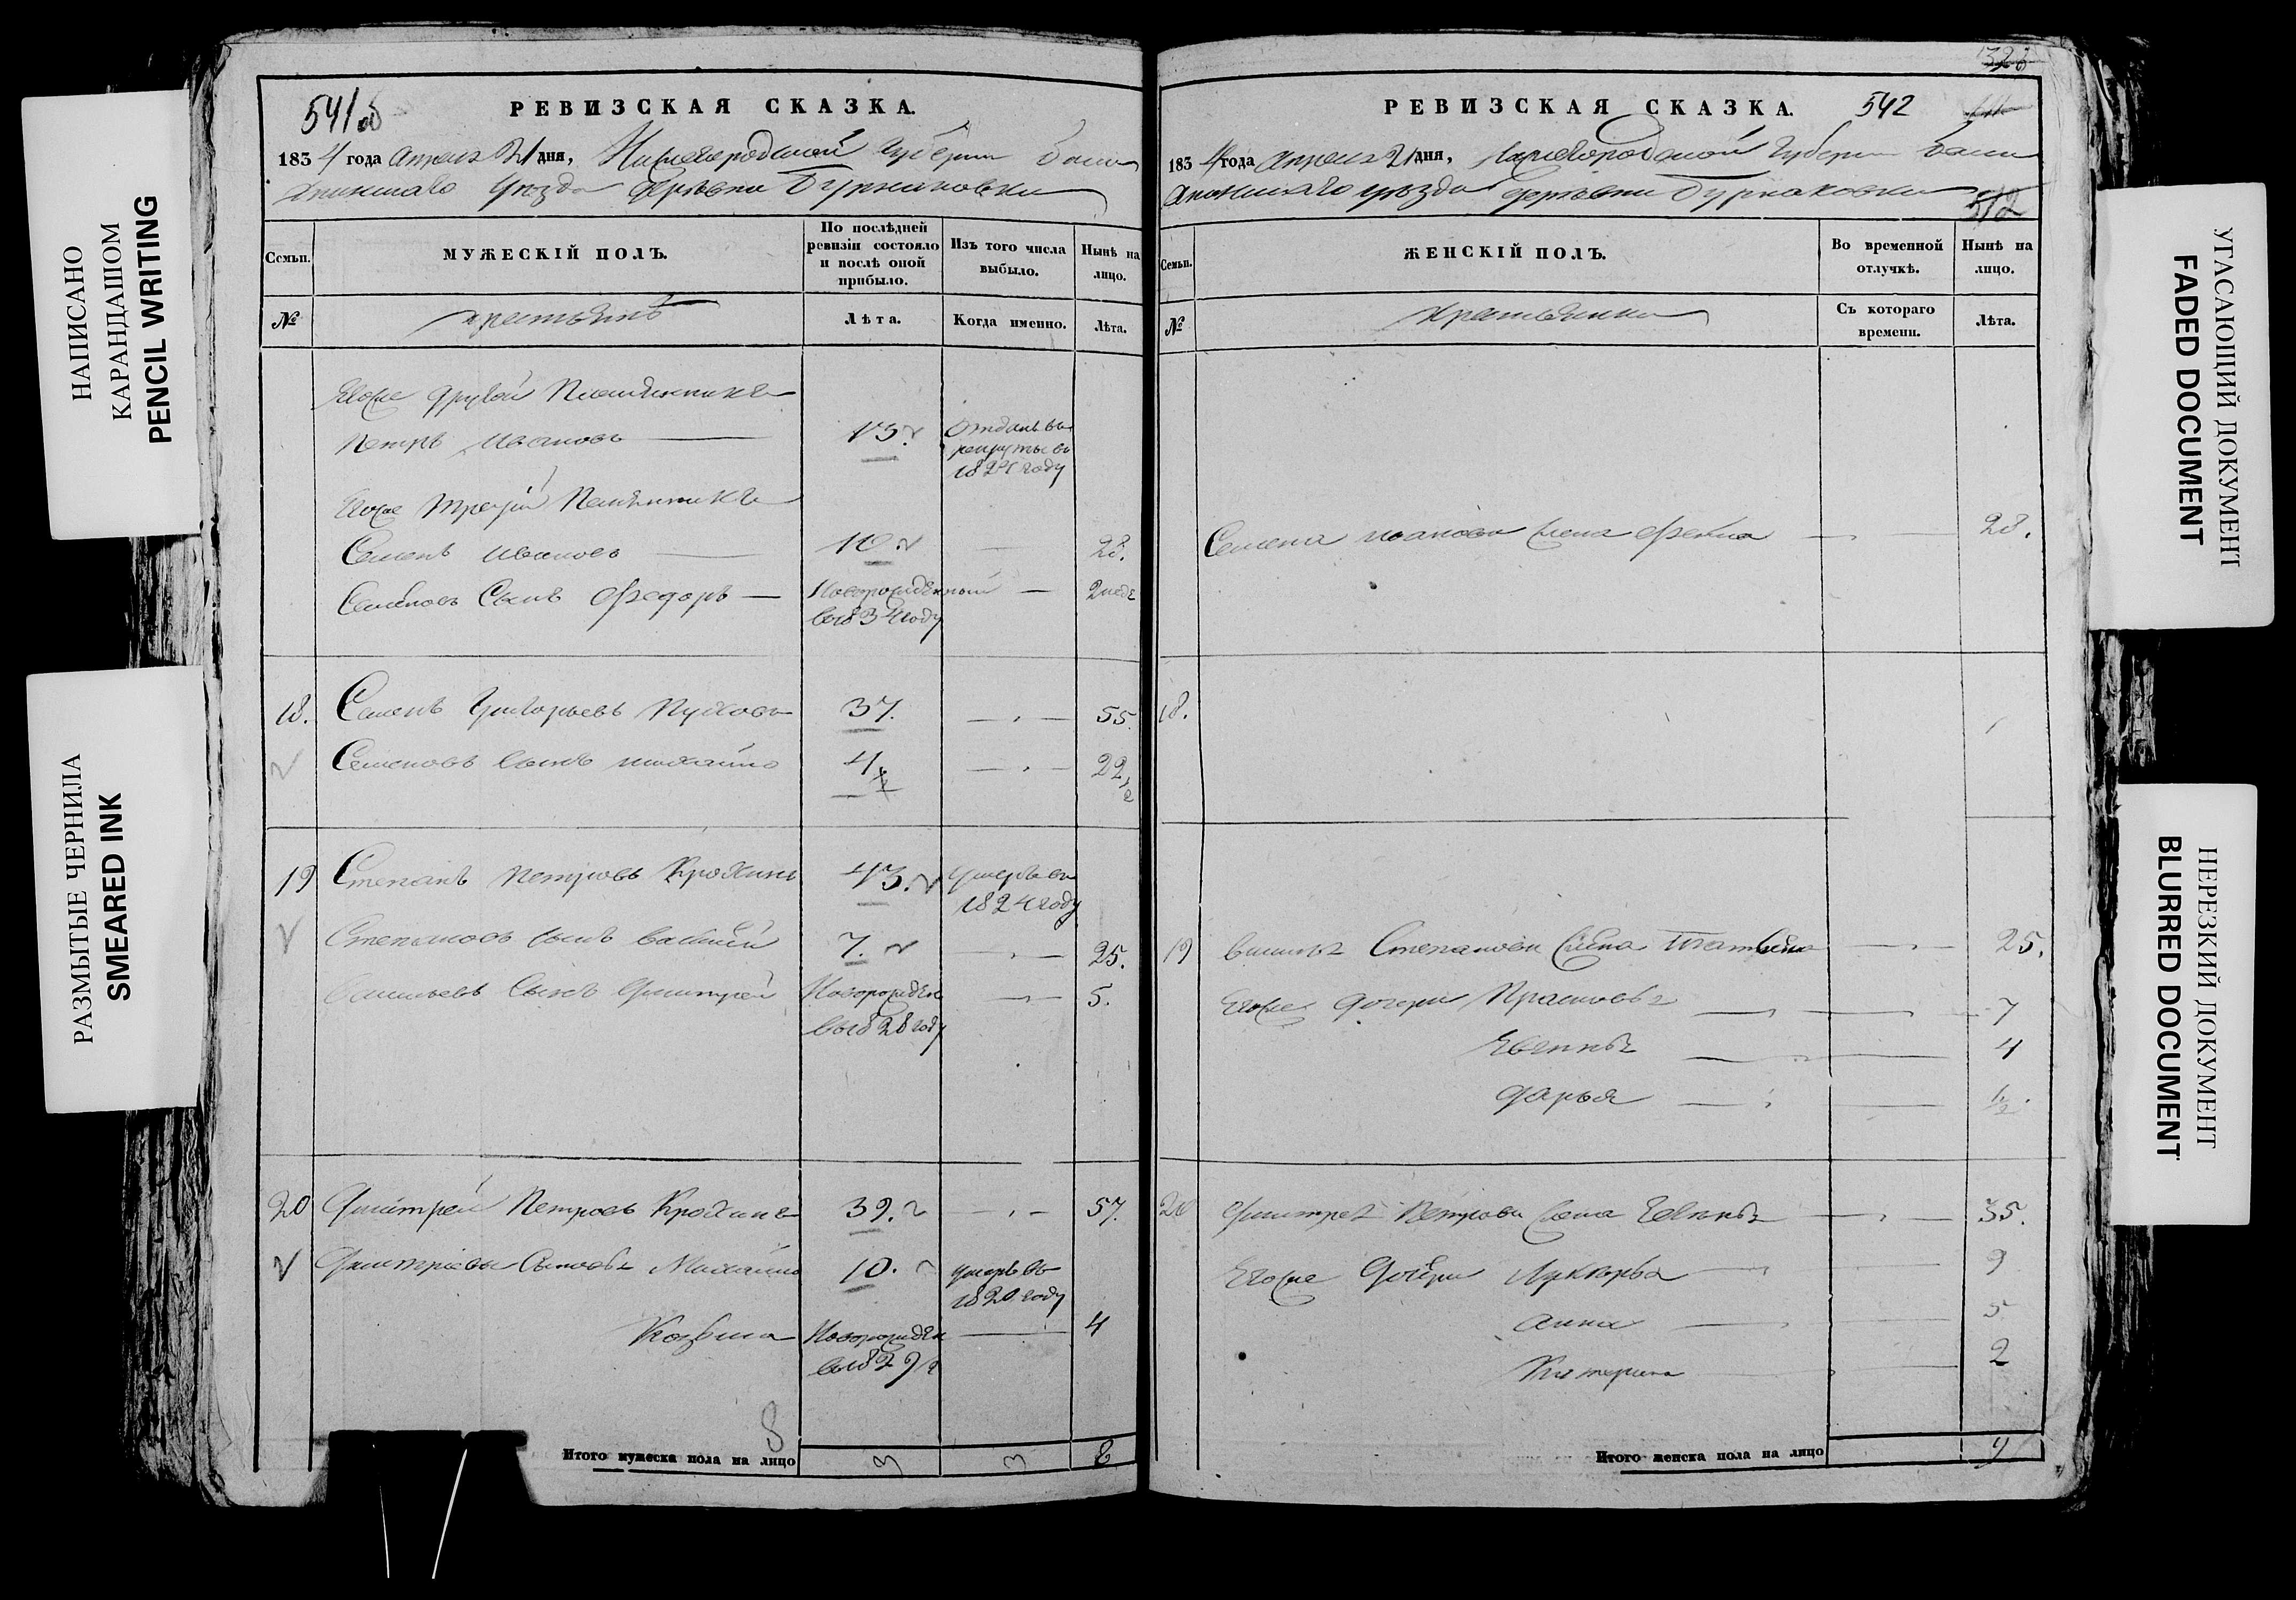 НАПИСАНО
КАРАНДАШОМ
PENCIL WRITING
РАЗМЫТЫЕ ЧЕРНИЛА
SMEARED INK
541об
РЕВИЗСКАЯ СКАЗКА.
1834 года апреля 21 дня, Нижегородской Губернии Бала
хнинскаго уезда деревни Бурнаковки
Семьи.
МУЖЕСКІЙ ПОЛЪ.
По послѣдней ревизіи состояло и послѣ оной прибыло.
Изъ того числа выбыло.
Нынѣ на лицо.
№
крестьянъ
Лѣта.
Когда именно.
Лѣта.
Егоже другой Племянникъ
Петръ Ивановъ 13. Отданъ въ
рекруты въ
182 году
Егоже третій Племянникъ
Семенъ Ивановъ 10 28.
Семеновъ Сынъ Федоръ Новорожденный 2 неде
въ 1834 году
18. Семенъ Григорьевъ Пуховъ 37. 55
Семеновъ сынъ михайло 4 1/2 22 1/2
19 Степанъ Петровъ Крохинъ 43. умеръ въ
1824 году
Степановъ сынъ василій 7. 25.
васильевъ Сынъ дмитрей Новорожден 5.
въ 1828 году
20 Дмитрей Петровъ Крохинъ 39. 57.
Дмитріевы Сыновья Михайло 10. умеръ въ
1820 году
Козьма Новорожден 4
въ 1829/г
8
Итого мужеска пола на лицо 8
323
РЕВИЗСКАЯ СКАЗКА. 542
1834 года апреля 21 дня, Нижегородской Губернии Бала
хнинскаго уезда деревни Бурнаковки
512
Семьи.
ЖЕНСКІЙ ПОЛЪ.
Во временной отлучкѣ.
Нынѣ на лицо.
№
крестьянки
Съ котораго времени.
Лѣта.
Семена иванова жена Фекла 28.
18.
19 василья Степанова жена Татьяна 25.
Егоже дочери Прасковья 7
Евгенья 4
дарья 1/2
20 дмитрея Петрова жена 35.
Егоже дочери Лукерья 9
анна 5
Катерина 2
Итого женска пола на лицо 9
УГАСАЮЩИЙ ДОКУМЕНТ
FADED DOCUMENT
НЕРЕЗКИЙ ДОКУМЕНТ
BLURRED DOCUMENT